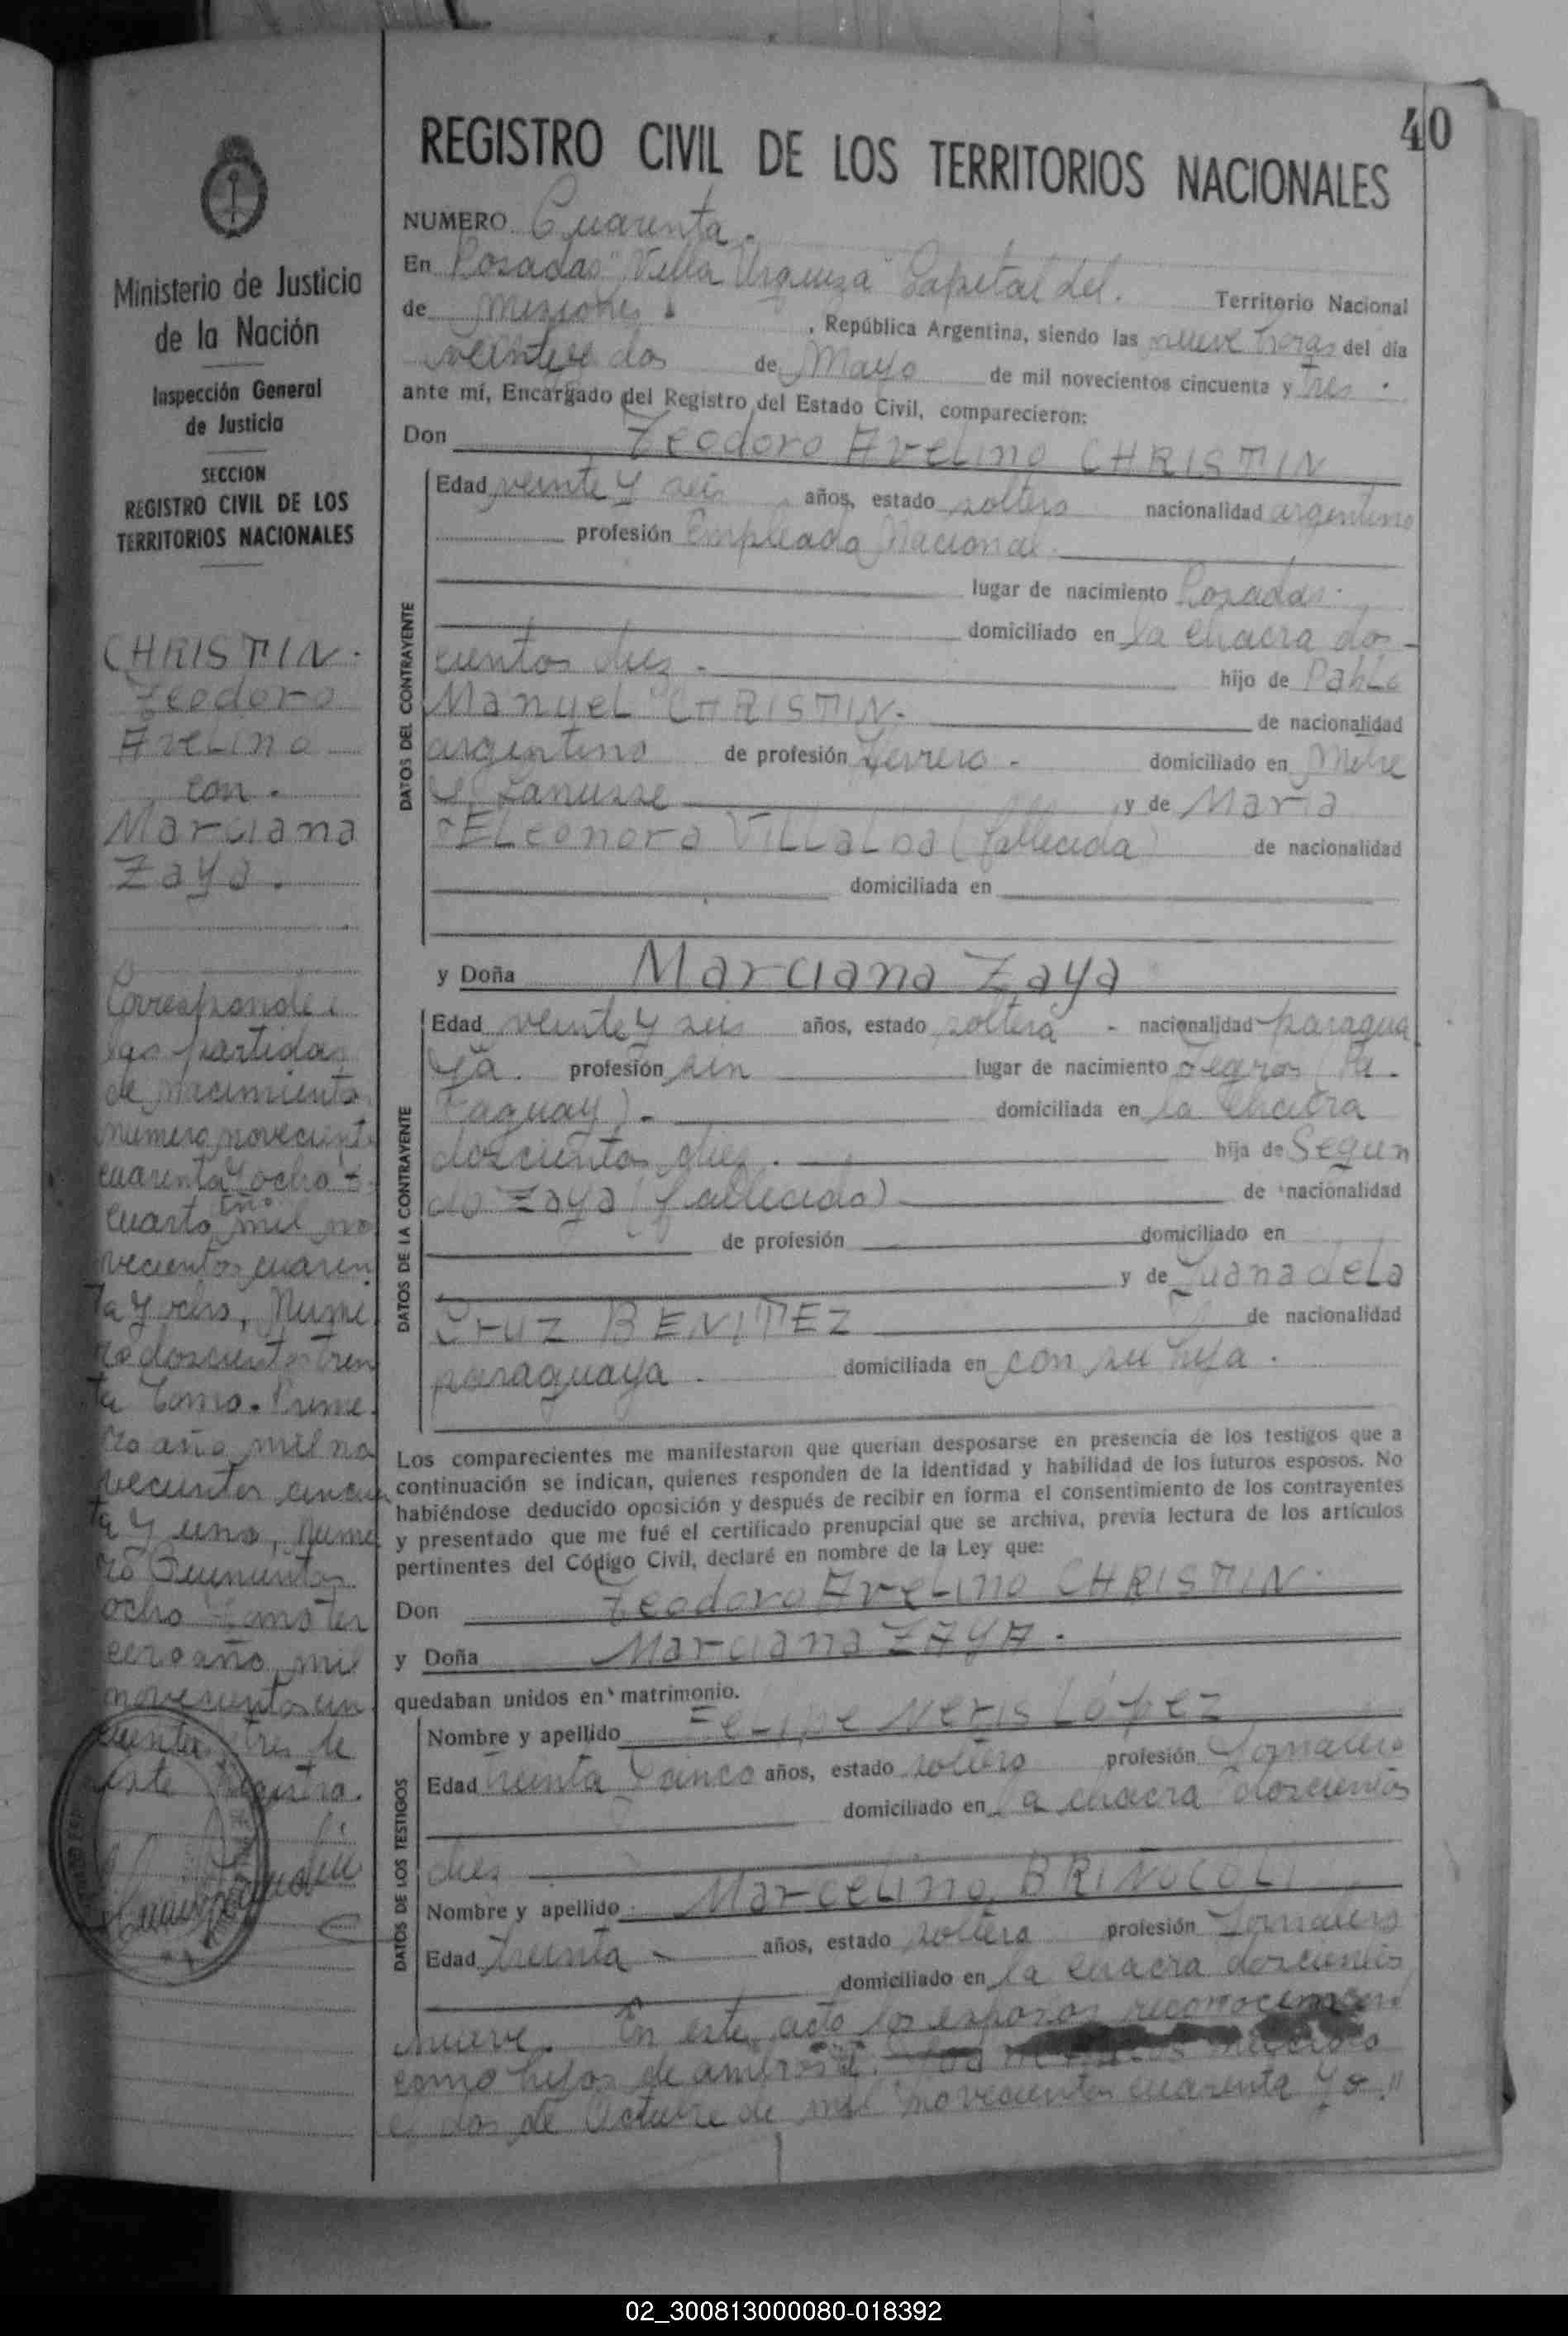 40
REGISTRO CIVIL DE LOS TERRITORIOS NACIONALES
Ministerio de Justicia
de la Nación
Inspección General
de Justicia
SECCION
REGISTRO CIVIL DE LOS
TERRITORIOS NACIONALES
CHRISTIN.
Teodoro
Avelino
con.
Marciana
Zaya.
Corresponde a
las partidas
de nacimiento
numero novecient
cuarenta y ocho t.
cuarto año mil no
vecientos cuaren
ta y ocho, Nume
ro doscientos trein
ta Tomo. Prime
ro año mil no
vecientos cincuen
ta y uno, nume
ro
ocho Tomo ter
cero año mil
novecientos cin
cuenta tres de
este Registro.
NUMERO Cuarenta.
En Posadas "Villa Urquiza" Capital del. Territorio Nacional
de Misiones. , República Argentina, siendo las nueve horas del día
veinte dos de Mayo de mil novecientos cincuenta y tres.
ante mí, Encargado del Registro del Estado Civil, comparecieron:
Don Teodoro Avelino CHRISTIN
DATOS DEL CONTRAYENTE
Edad veinte y seis años, estado soltero nacionalidad argentino
profesión Empleado Nacional.
lugar de nacimiento Posadas.
domiciliado en la chacra dos-
cientos diez. hijo de Pablo
Manuel CHRISTIN. de nacionalidad
argentino de profesión domiciliado en Mitre
y Lanusse y de Maria
Eleonora Villalba (fallecida) de nacionalidad
domiciliada en
y Doña Marciana Zaya
DATOS DE LA CONTRAYENTE
Edad veinte y seis años, estado soltera - nacionalidad paragua
ya. profesión sin lugar de nacimiento (Pa-
raguay). domiciliada en la Chacra
doscientos diez. hija de Segun
do Zaya (fallecido) de nacionalidad
de profesión domiciliado en
y de Juana de La
Cruz BENITEZ de nacionalidad
paraguaya. domiciliada en con su hija.
Los comparecientes me manifestaron que querían desposarse en presencia de los testigos que a
continuación se indican, quienes responden de la identidad y habilidad de los futuros esposos. No
habiéndose deducido oposición y después de recibir en forma el consentimiento de los contrayentes
y presentado que me fué el certificado prenupcial que se archiva, previa lectura de los artículos
pertinentes del Código Civil, declaré en nombre de la Ley que:
Don Teodoro Avelino CHRISTIN.
y Doña Marciana ZAYA.
quedaban unidos en matrimonio.
DATOS DE LOS TESTIGOS
Nombre y apellido Felipe Neris López
Edad treinta y cinco años, estado soltero profesión Jornalero
domiciliado en la chacra doscientos
diez
Nombre y apellido Marcelino BRITOCOLI
Edad treinta años, estado soltero profesión Jornalero
domiciliado en la chacra doscientos
nueve. En este acto los esposos reconocen
como hijos de ambos
el dos de Octubre de mil novecientos cuarenta y o."
02_300813000080-018392